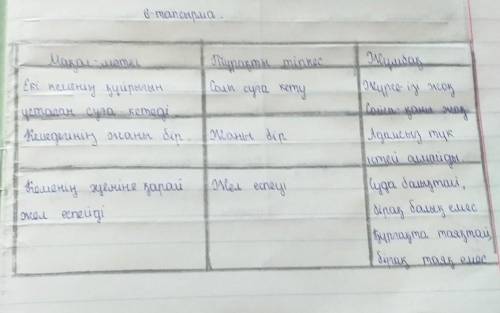 6-тапсырма.
Мақал-мәтел
Тұрақты тіркес
Жұмбақ
Екі кеменің құйрығын
ұстаған суға кетеді
Салы суға кету
Жүрсе ізі жоқ
Сойса қаны жоқ
Кемедегінің жаны бір.
Жаны бір
Адамсыз түк
істей алмайды
Кеменің жүзіне қарай
жел еспейді
Жел еспеуі
Суда балықтай,
бірақ балық емес
Құрғақта таяқтай,
бірақ таяқ емес